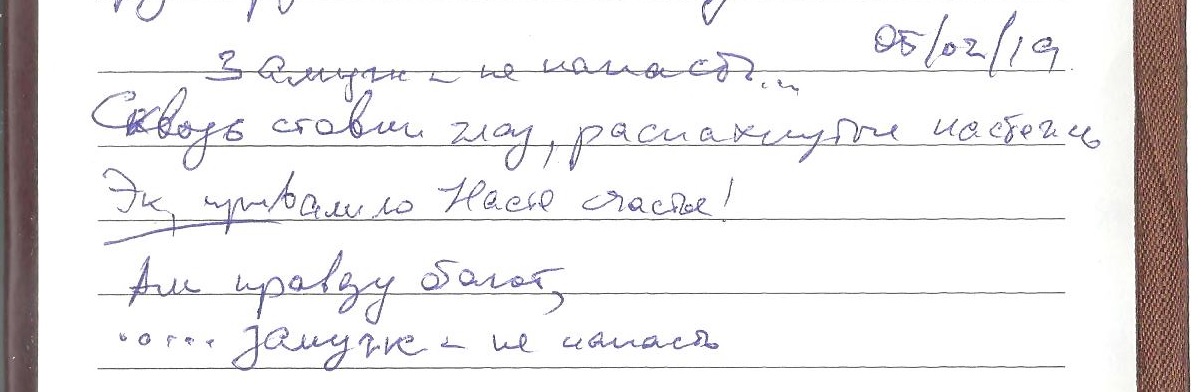 05/02/19
Замуж - не напасть...
Сквозь ставни глаз, распахнутые настежь
Эк, привалило Насте счастье!
Али правду болот,
..... замуж - не напасть